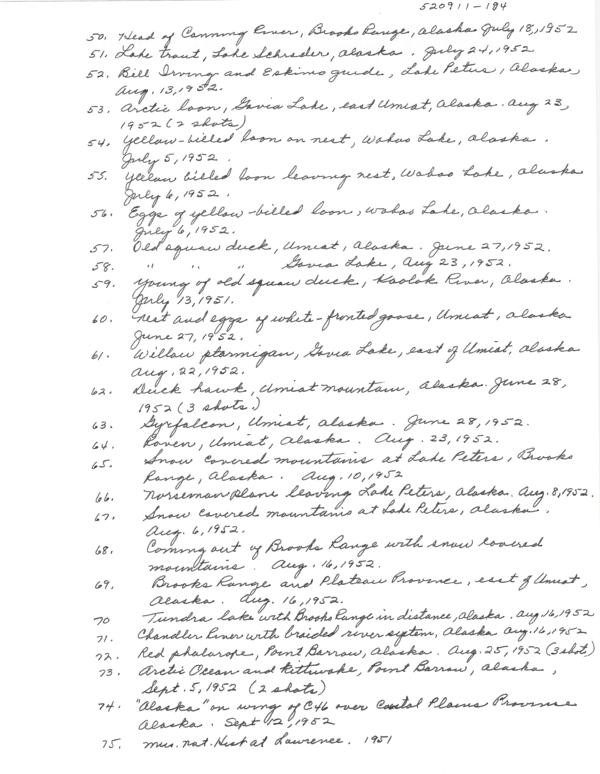 520911-184
50. Head of Canning River, Brooks Range, Alaska July 18, 1952
51. Lake trout, Lake Schrader, Alaska. July 24, 1952
52. Bill Irving and Eskimo guide, Lake Peters, Alaska,
Aug. 13, 1952.
53. Arctic loon, Gavia Lake, east Umiat, Alaska. Aug 23,
1952 (2 shots)
54. Yellow-billed loon on nest, Wahoo Lake, Alaska.
July 5, 1952.
55. Yellow billed loon leaving nest, Wahoo Lake, Alaska
July 6, 1952.
56. Eggs of yellow-billed loon, Wahoo Lake, Alaska.
July 6, 1952.
57. Old squaw duck, Umiat, Alaska. June 27, 1952.
58. " " " Gavia Lake, Aug 23, 1952.
59. Young of old squaw duck, Kaolok River, Alaska.
July 13, 1951.
60. Nest and eggs of white-fronted goose, Umiat, Alaska
June 27, 1952.
61. Willow ptarmigan, Gavia Lake, east of Umiat, Alaska
Aug, 22, 1952.
62. Duck hawk, Umiat Mountain, Alaska. June 28,
1952 (3 shots.)
63. Gyrfalcon, Umiat, Alaska. June 28, 1952.
64. Raven, Umiat, Alaska. Aug. 23, 1952.
65. Snow covered mountains at Lake Peters, Brooks
Range, Alaska. Aug. 10, 1952
66. Norseman plane leaving Lake Peters, Alaska. Aug. 8, 1952.
67. Snow covered mountains at Lake Peters, Alaska.
Aug. 6, 1952.
68. Coming out of Brooks Range with snow covered
mountains. Aug. 16, 1952.
69. Brooks Range and Plateau Province, east of Umiat,
Alaska. Aug. 16, 1952.
70 Tundra lake with Brooks Range in distance, Alaska. Aug 16, 1952
71. Chandler River with braided river system, Alaska Aug. 16, 1952
72. Red phalarope, Point Barrow, Alaska. Aug. 25, 1952 (3 shots)
73. Arctic Ocean and Kittiwake, Point Barrow, Alaska,
Sept. 5, 1952 (2 shots)
74. "Alaska" on wing of C46 over Coastal Plains Province
Alaska. Sept 12, 1952
75. Mus. Nat. Hist at Lawrence. 1951